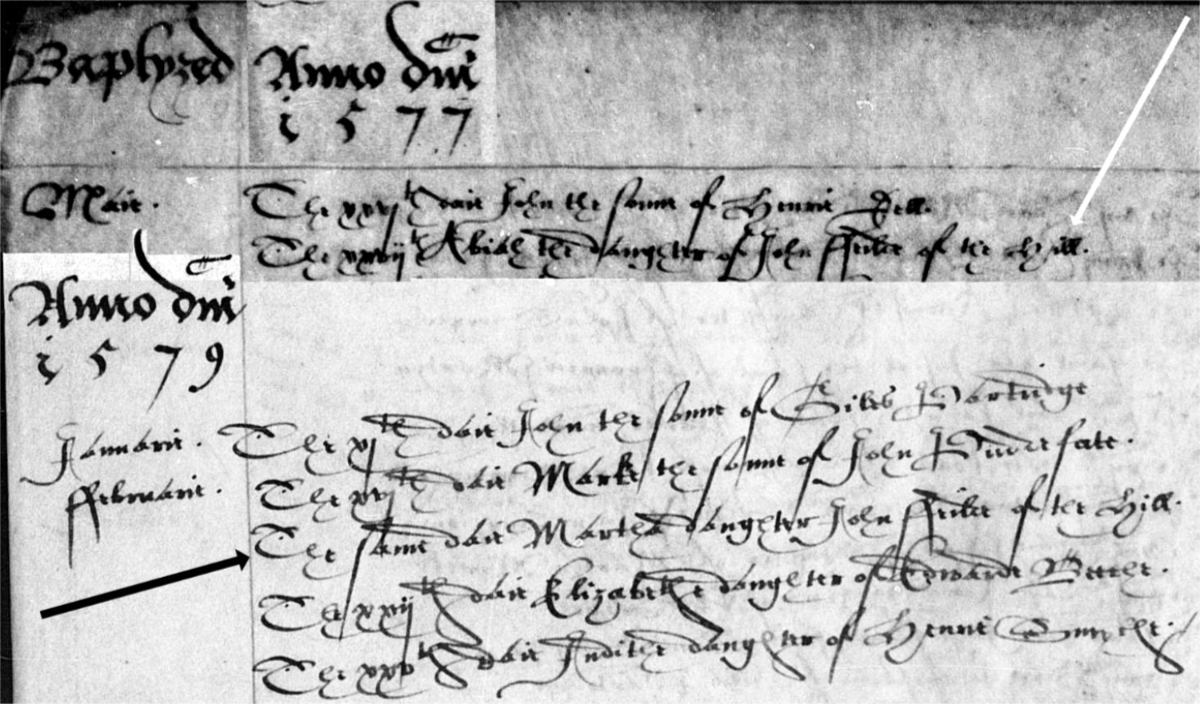 Baptyzed
Anno dm̃i
1577
Maie.
The xxvjth daie John the sonne of Henrie Dell.
The xxvijth Abiah the daughter of John ffrike of the Hill.
Anno dm̃i
1579
Januarie.
The xjth daie John the sonne of Giles Partridge
ffebruarie.
The xvjth daie Marke the sonne of John
The same daie Martha daughter John ffrike of the Hill.
The xxijth daie Elizabethe daughter of Edwarde
The xxvth daie Judithe daughter of Henri